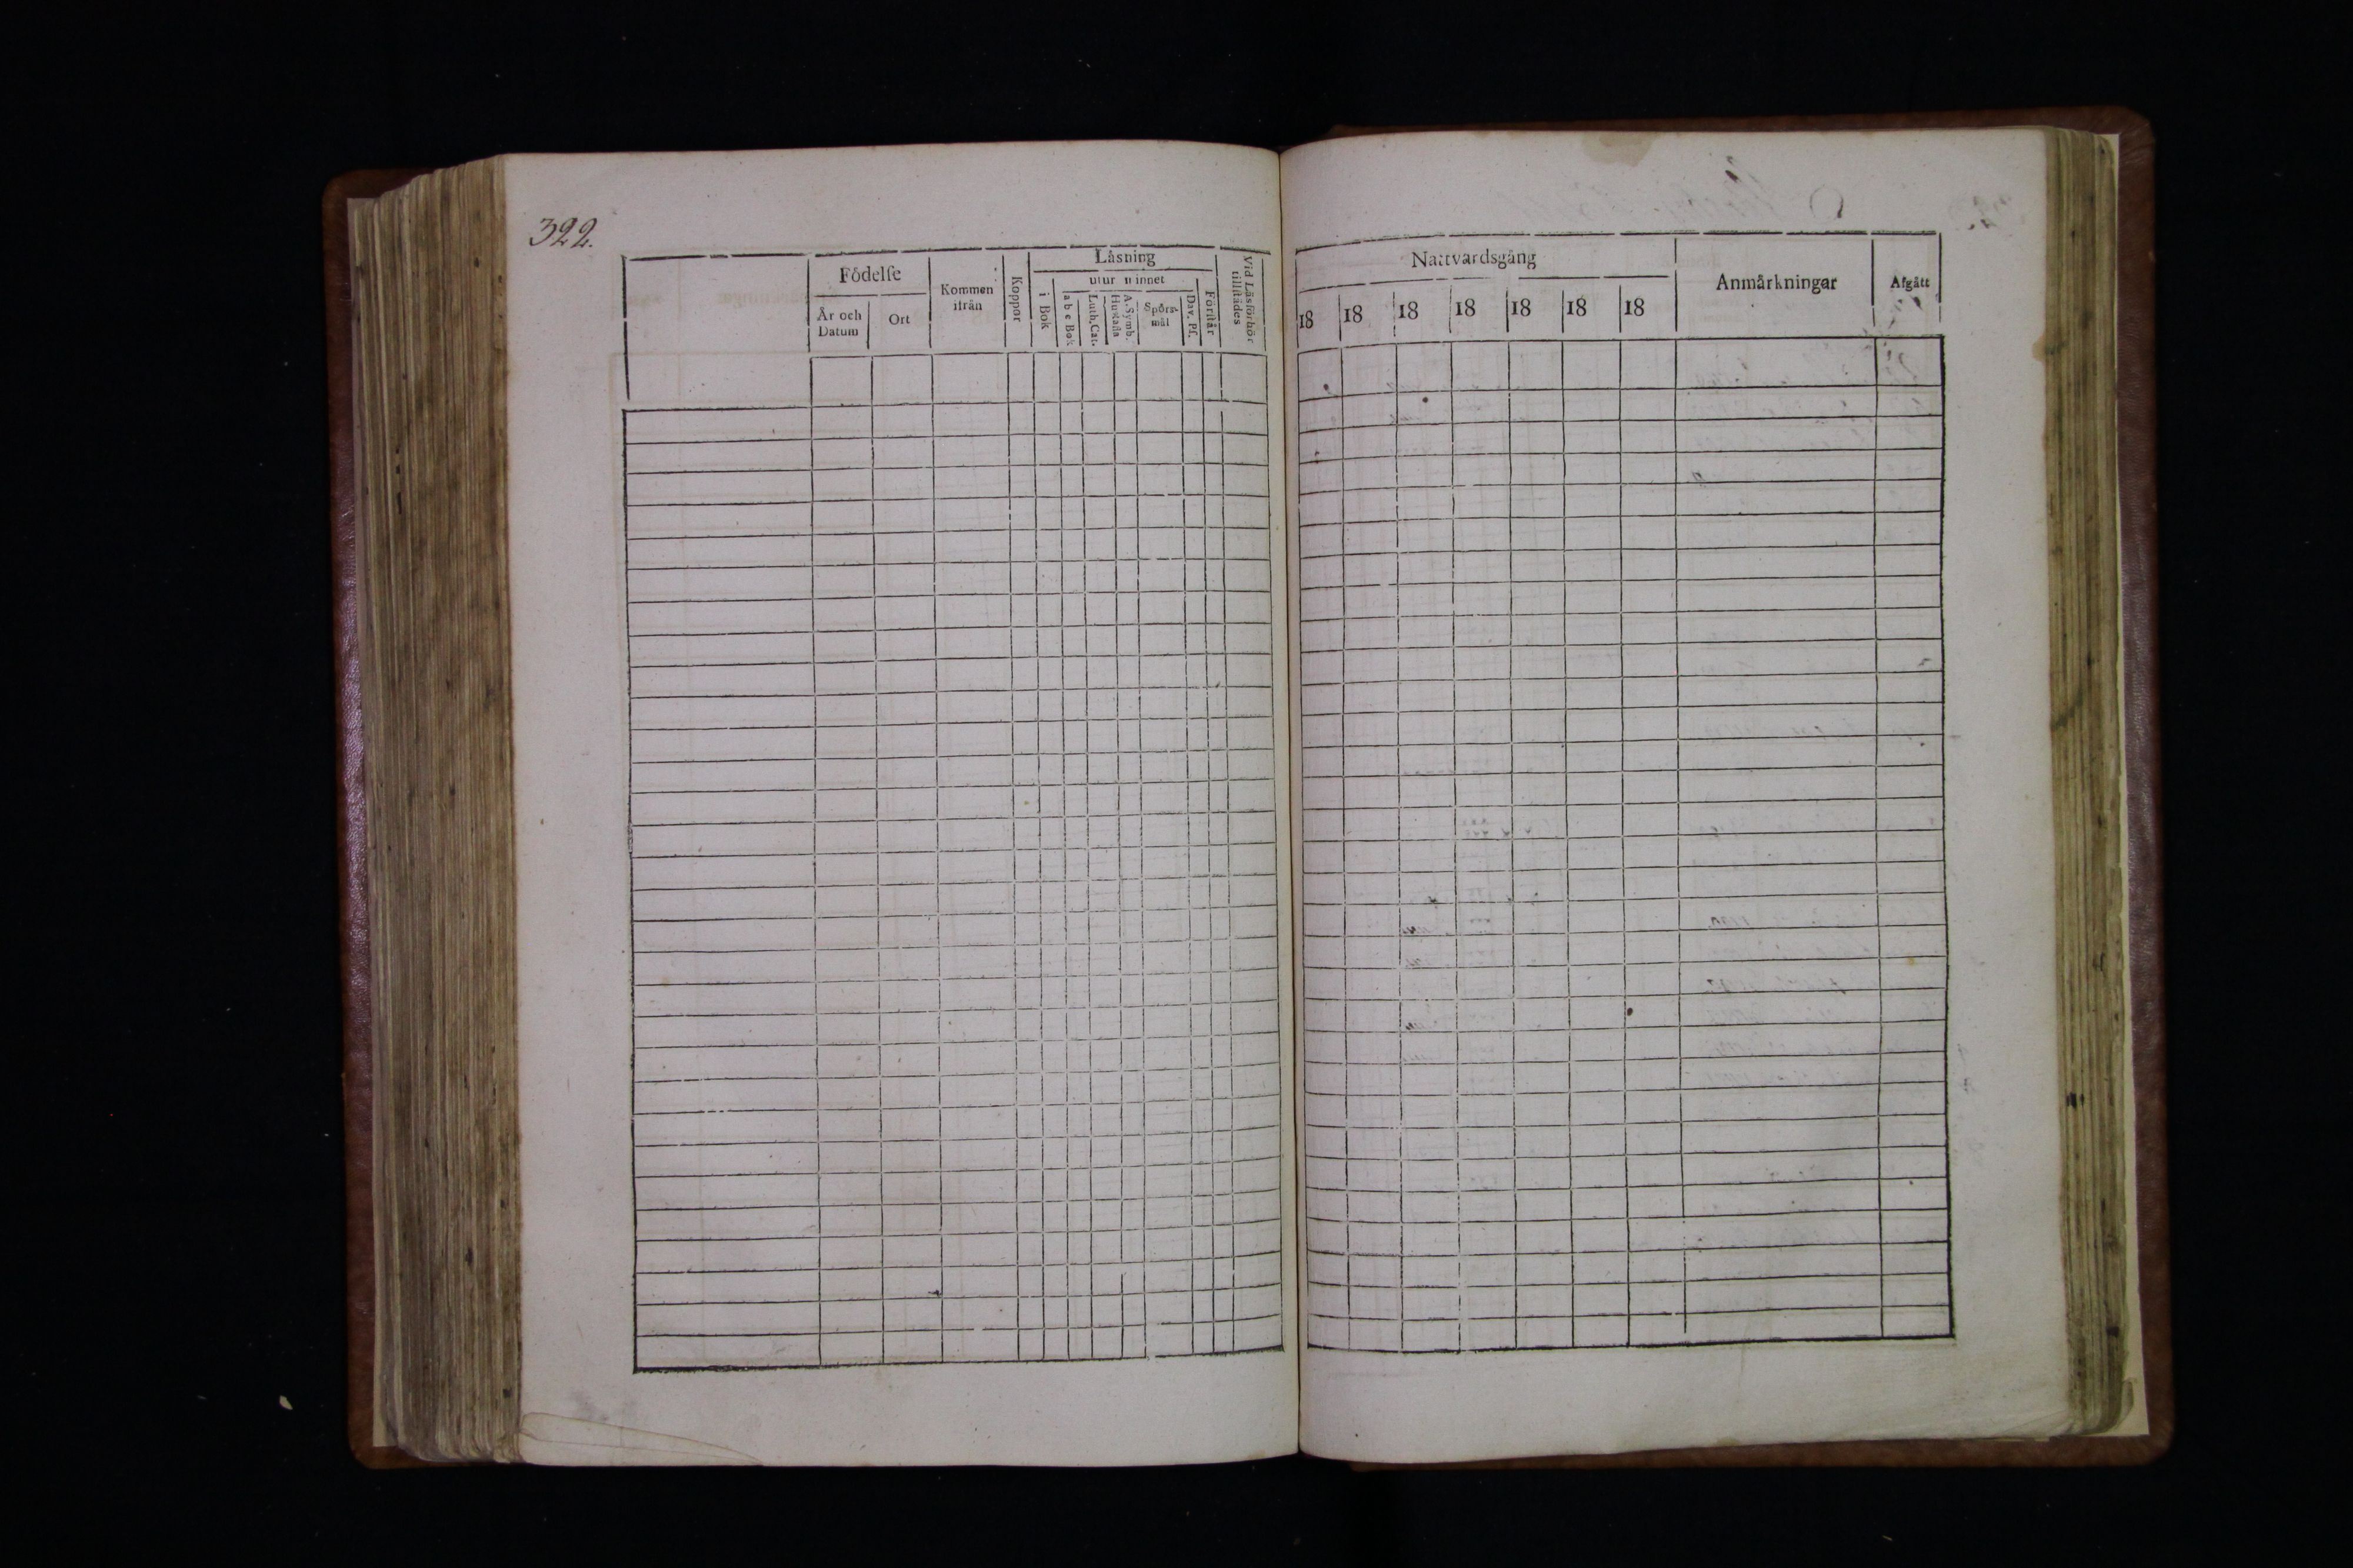 322.
Födelse
År och Datum
Ort
Kommen ifrån
Koppor
Läsning
i Bok
utur minnet
a b c Bok
Luth. Cat.
A. Symb. Hustafla
Spörsmål
Dav. Ps.
Förstår
Vid Läsförhör tillstädes
Nattvardsgång
18 18 18 18 18 18 18
Anmärkningar
Afgått